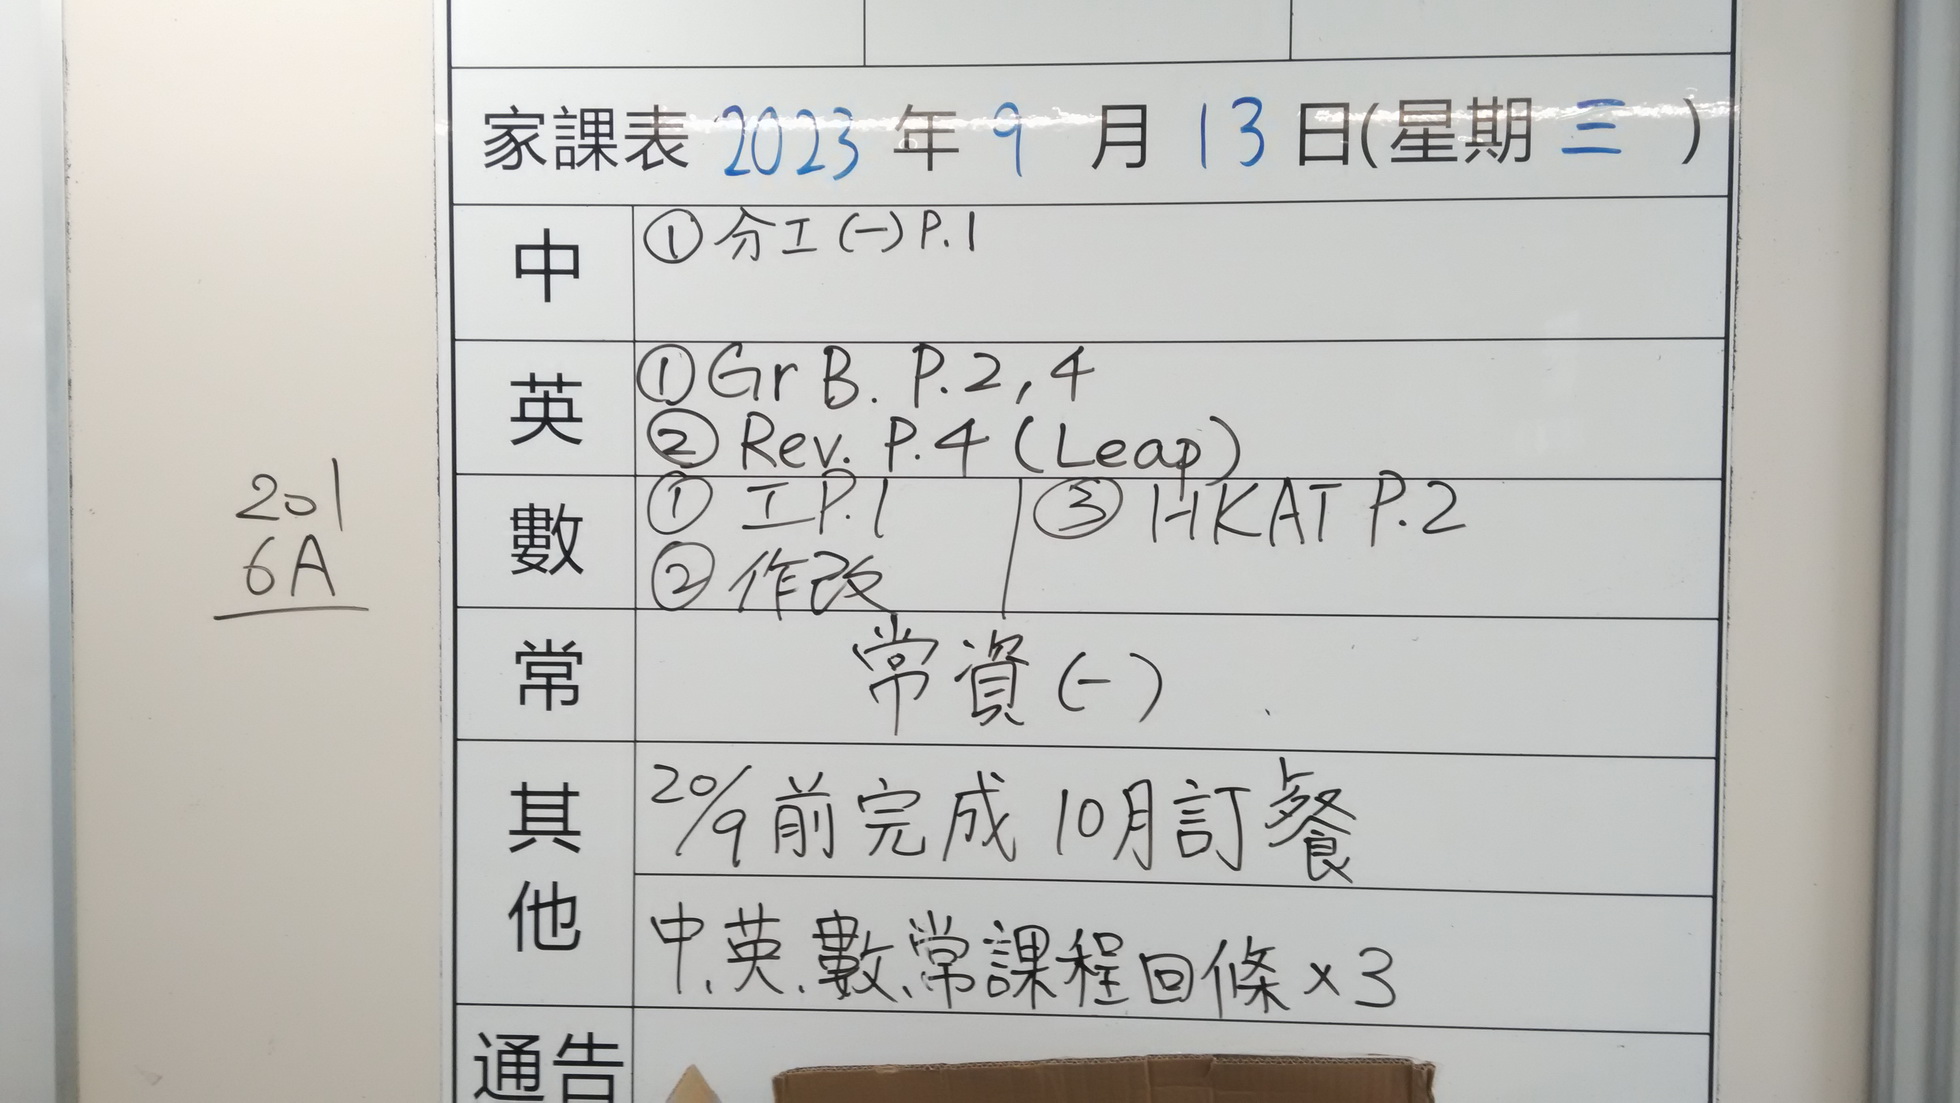 家課表 2023 年 9 月 13 日(星期 三 )
中 ① 分工(一) P.1
英 ① Gr B. P.2, 4
② Rev. P.4 (Leap)
數 ① 工 P.1 ③ HKAT P.2
② 作改
常 常資(一)
其他 20/9 前完成 10月訂餐
中、英、數、常課程回條 x 3
通告
201
6A